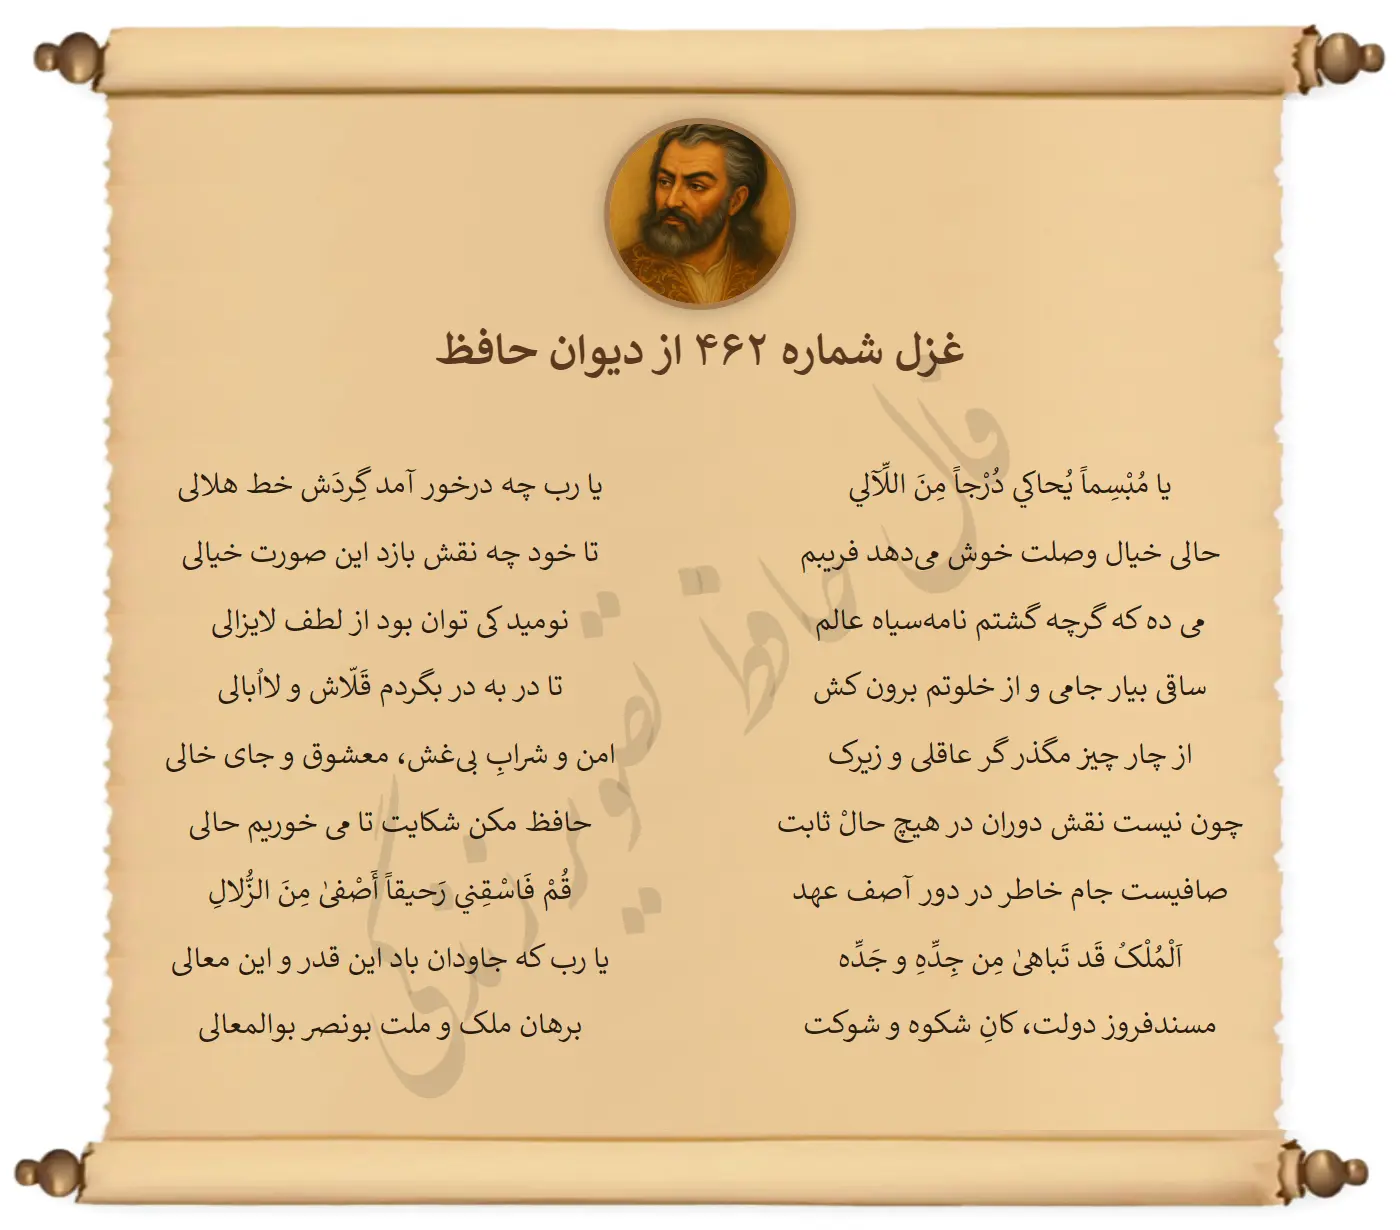 غزل شماره ۴۶۲ از دیوان حافظ
یا مُبْسِماً یُحاکي دُرْجاً مِنَ اللَّآلي یا رب چه درخور آمد گِردَش خط هلالی
حالی خیال وصلت خوش می‌دهد فریبم تا خود چه نقش بازد این صورت خیالی
می ده که گرچه گشتم نامه‌سیاه عالم نومید کی توان بود از لطف لایزالی
ساقی بیار جامی و از خلوتم برون کش تا در به در بگردم قَلّاش و لااُبالی
از چار چیز مگذر گر عاقلی و زیرک امن و شرابِ بی‌غش، معشوق و جای خالی
چون نیست نقش دوران در هیچ حالْ ثابت حافظ مکن شکایت تا می خوریم حالی
صافیست جام خاطر در دور آصف عهد قُمْ فَاسْقِني رَحیقاً أَصْفیٰ مِنَ الزُّلالِ
اَلْمُلْکُ قَد تَباهیٰ مِن جِدِّهِ و جَدِّه یا رب که جاودان باد این قدر و این معالی
مسندفروز دولت، کانِ شکوه و شوکت برهان ملک و ملت بونصر بوالمعالی
فال حافظ تصویر زندگی